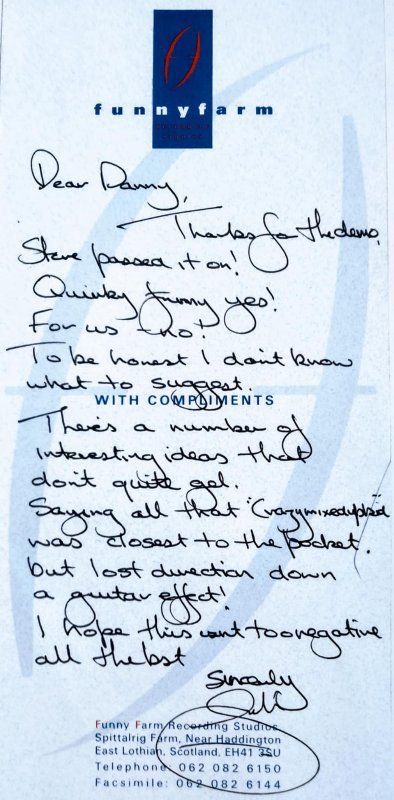 funnyfarm
Dear Danny,
Thanks for the demo,
Steve passed it on!
Quirky funny yes!
For us - no!
To be honest I don't know
what to suggest.
WITH COMPLIMENTS
There's a number of
interesting ideas that
don't quite gel.
Saying all that "Crazymixedup
was closest to the pocket.
but lost direction down
a guitar effect!
I hope this isn't too negative
all the bst
Sincerely
Funny Farm Recording Studios
Spittalrig Farm, Near Haddington
East Lothian, Scotland, EH41 3SU
Telephone: 062 082 6150
Facsimile: 062 082 6144